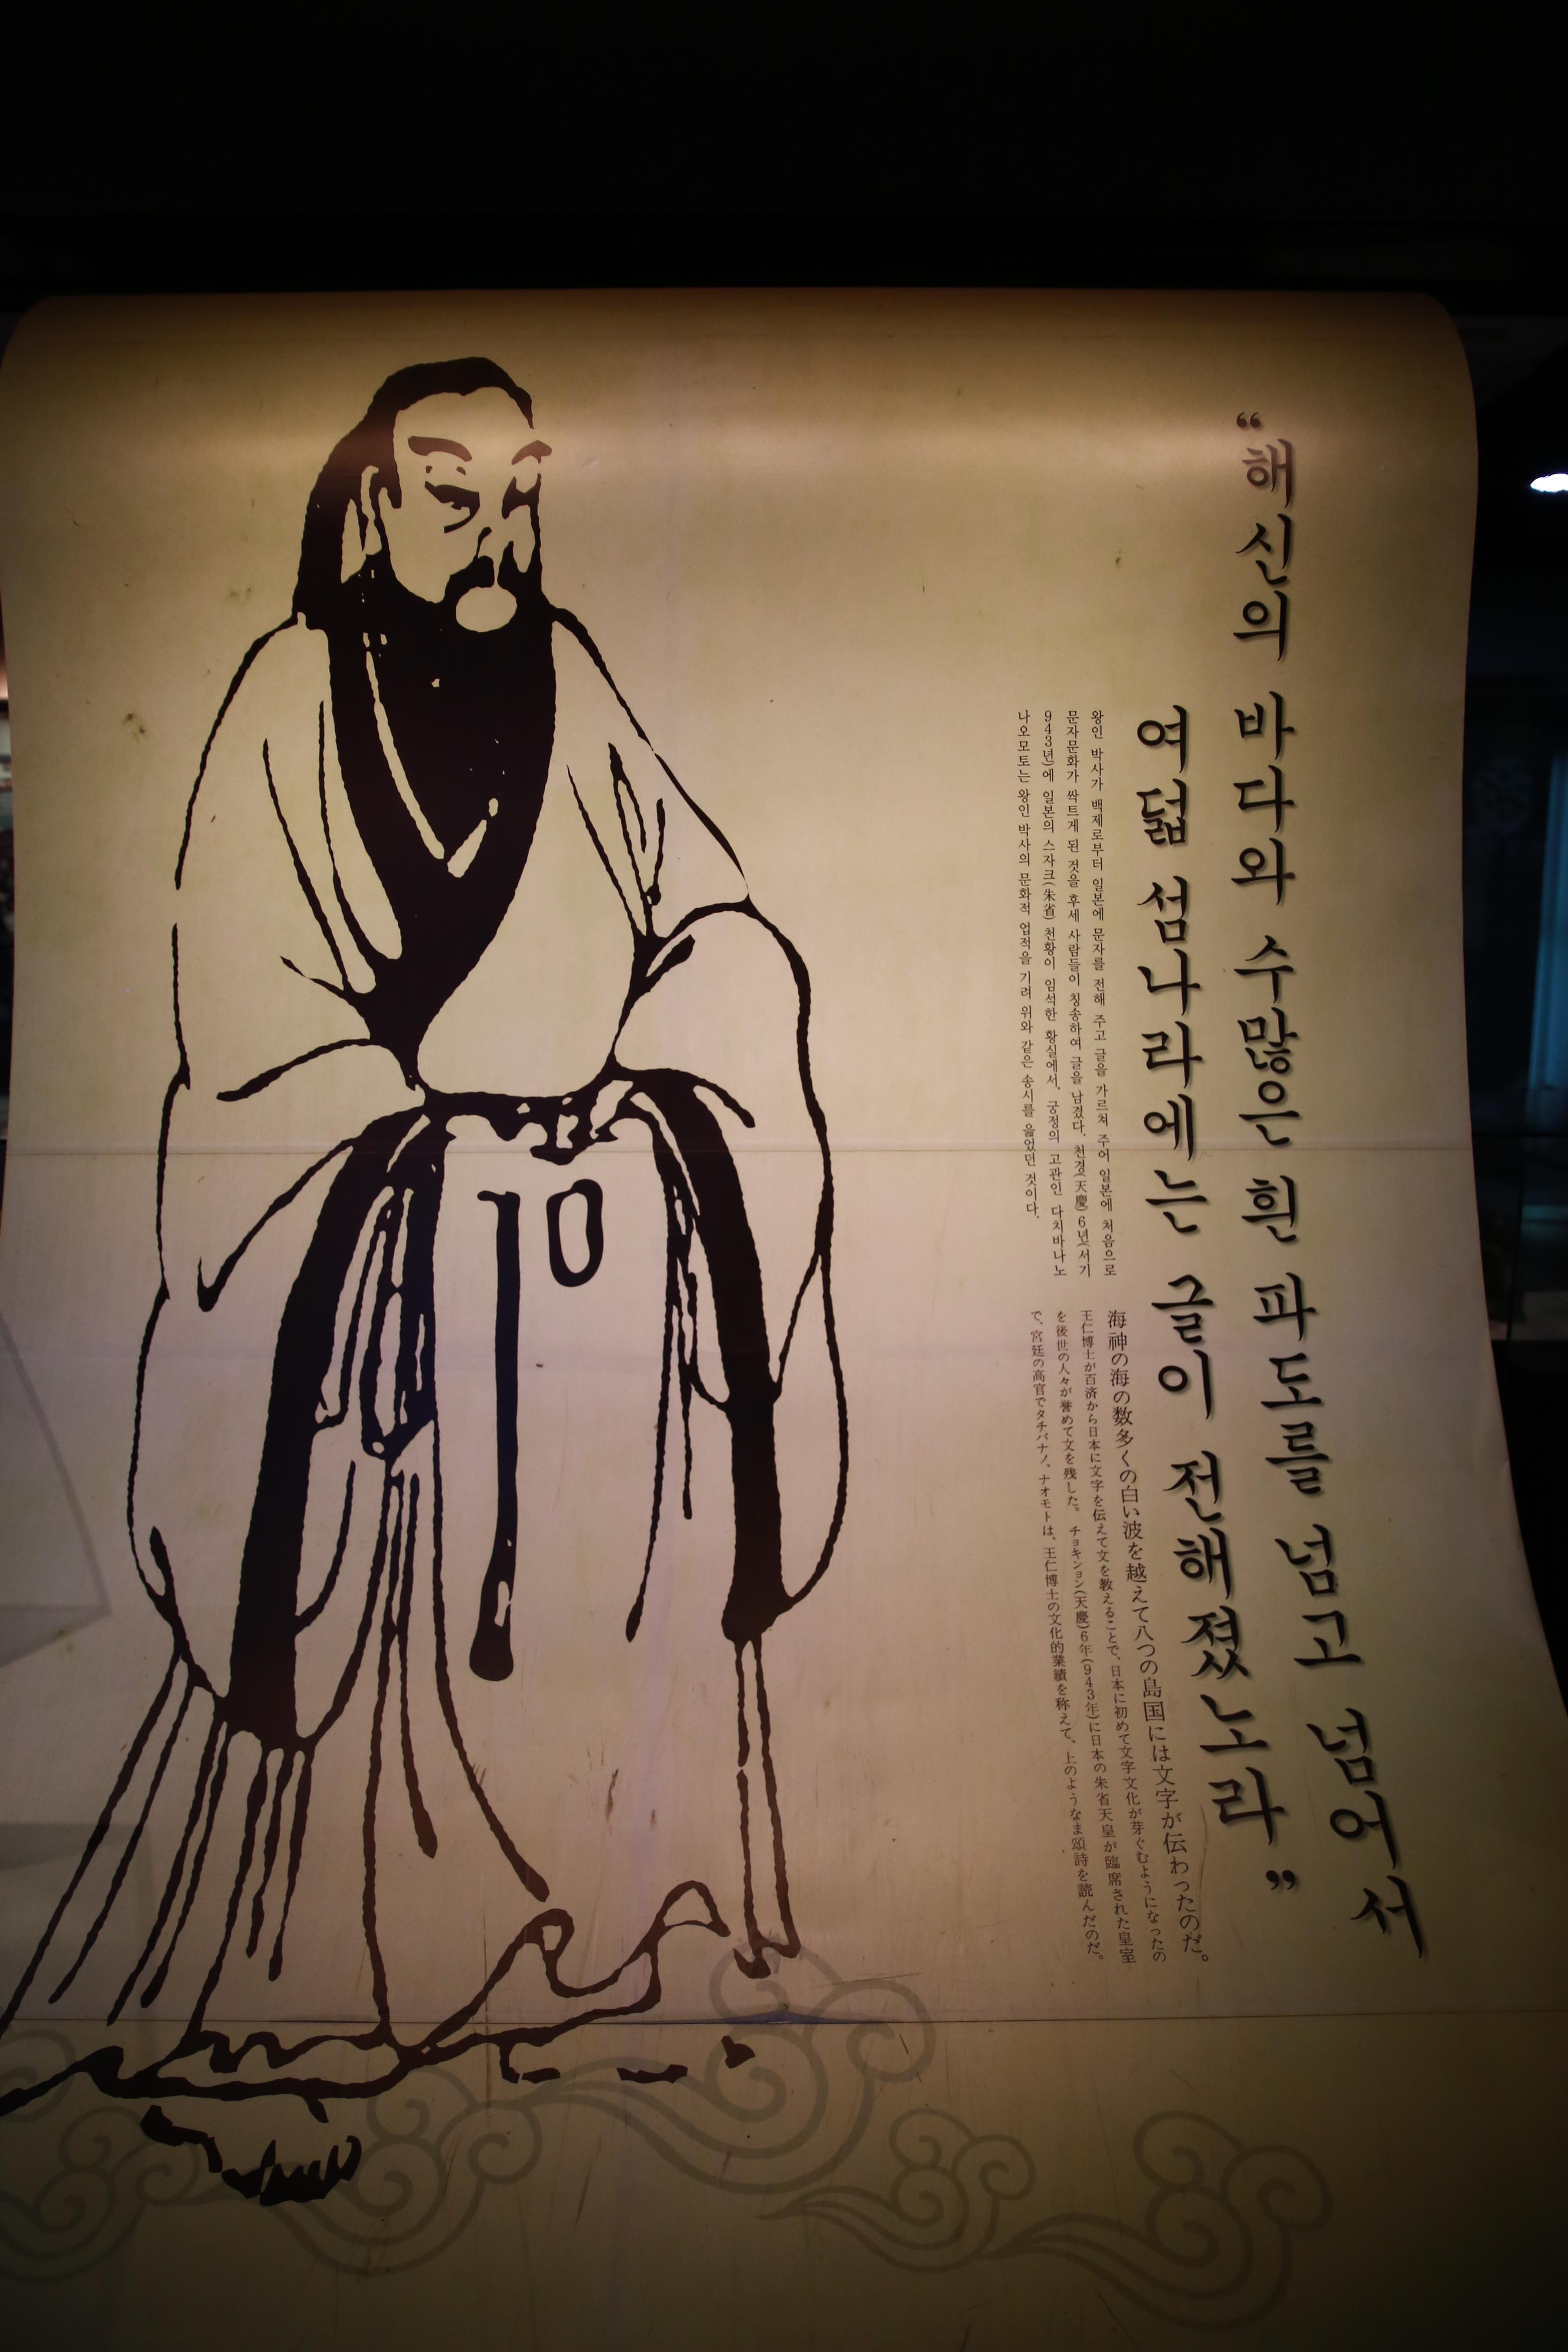 “해신의 바다와 수많은 흰 파도를 넘고 넘어서
여덟 섬나라에는 글이 전해졌노라”
왕인 박사가 백제로부터 일본에 문자를 전해 주고 글을 가르쳐 주어 일본에 처음으로
문자문화가 싹트게 된 것을 후세 사람들이 칭송하여 글을 남겼다. 천경(天慶) 6년(서기
943년)에 일본의 스자크(朱省) 천황이 임석한 황실에서, 궁정의 고관인 다치바나노
나오모토는 왕인 박사의 문화적 업적을 기려 위와 같은 송시를 읊었던 것이다.
海神の海の数多くの白い波を越えて八つの島国には文字が伝わったのだ。
王仁博士が百済から日本に文字を伝えて文を教えることで、日本に初めて文字文化が芽ぐむようになったの
を後世の人々が誉めて文を残した。チョキンョン(天慶)6年(943年)に日本の朱省天皇が臨席された皇室
で、宮廷の高官でタチバナノ、ナオモトは、王仁博士の文化的業績を称えて、上のようなま頌詩を読んだのだ。